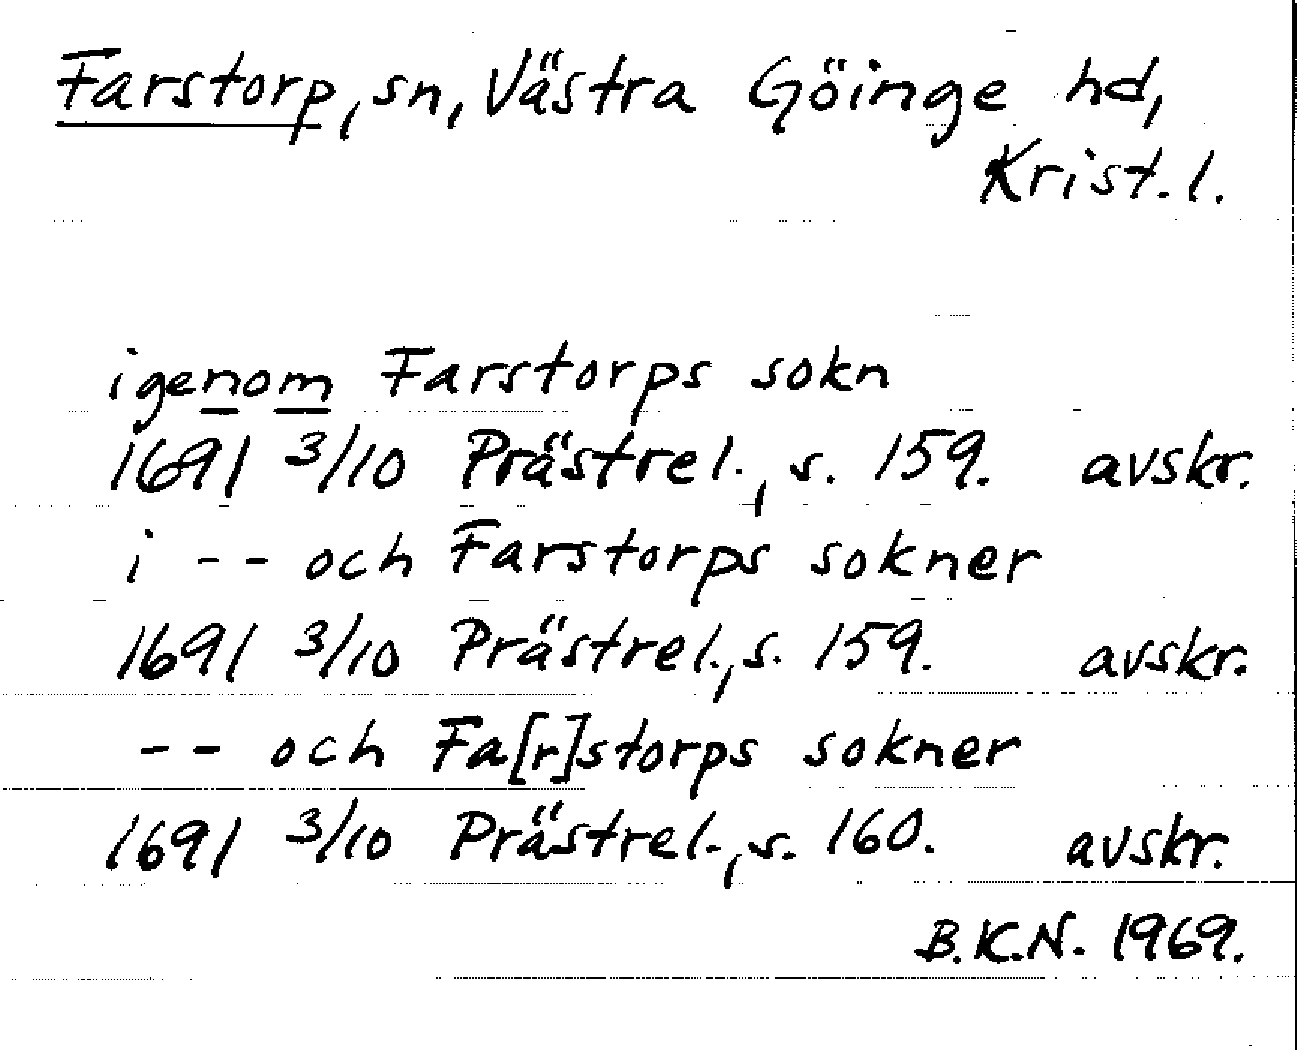 Farstorp, sn, Västra Göinge hd,
Krist. l.
igenom Farstorps sokn
1691 3/10 Prästrel., s. 159. avskr.
i -- och Farstorps sokner
1691 3/10 Prästrel., s. 159. avskr.
-- och Fa[r]storps sokner
1691 3/10 Prästrel., s. 160. avskr.
B.K.N. 1969.